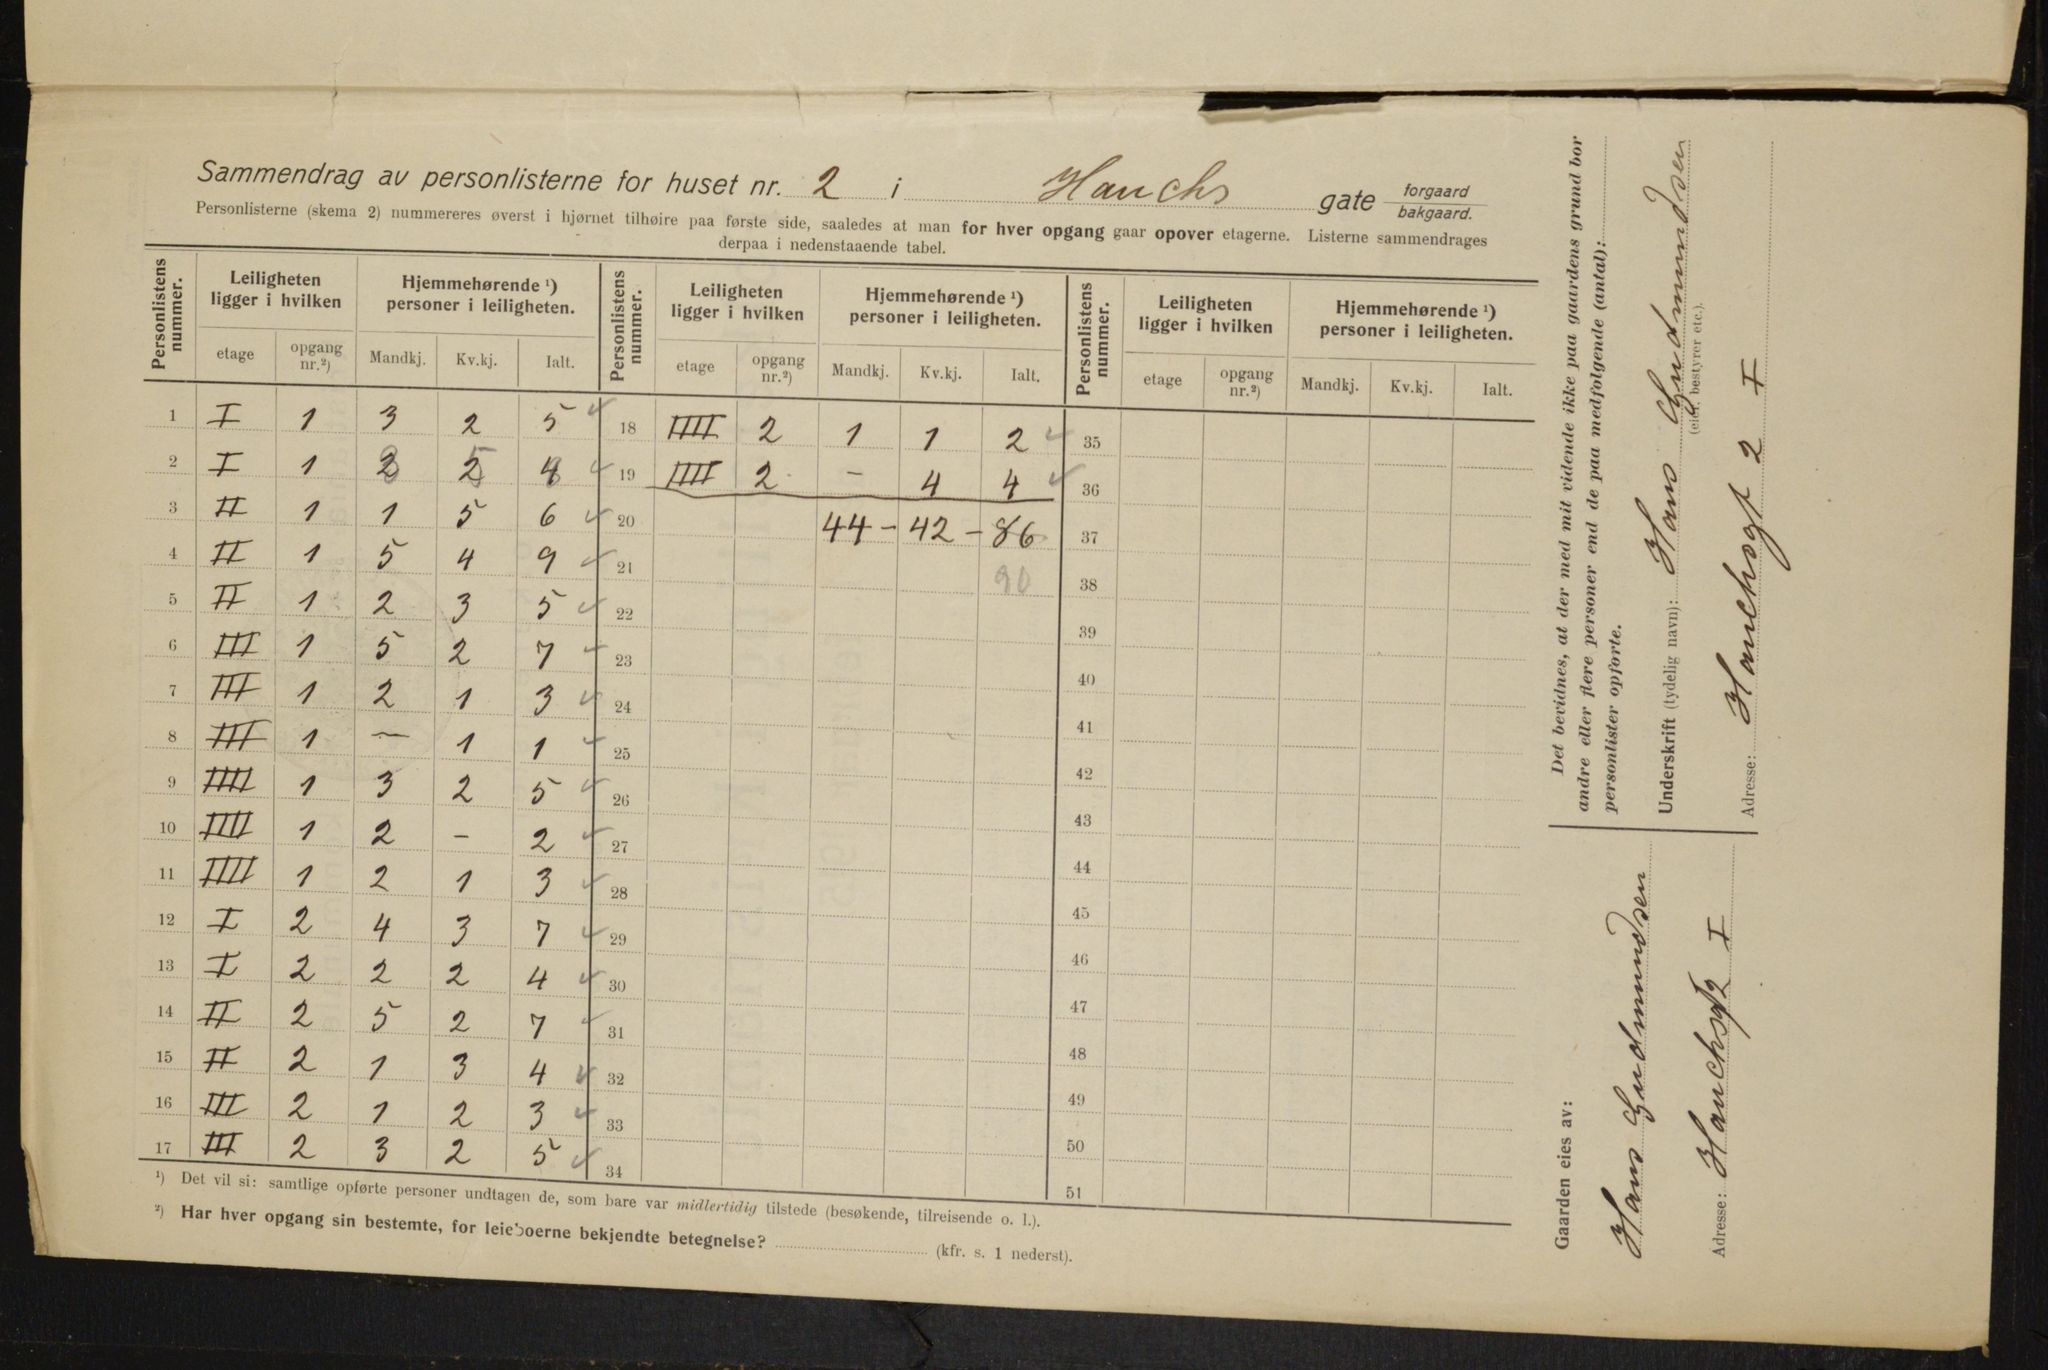 Sammendrag av personlisterne for huset nr. 2 i Hauchs gate forgaard bakgaard.
Personlisterne (skema 2) nummereres øverst i hjørnet tilhøire paa første side, saaledes at man for hver opgang gaar opover etagerne. Listerne sammendrages
derpaa i nedenstaaende tabel.
Personlistens nummer. Leiligheten ligger i hvilken Hjemmehørende ¹) personer i leiligheten. Personlistens nummer. Leiligheten ligger i hvilken Hjemmehørende ¹) personer i leiligheten. Personlistens nummer. Leiligheten ligger i hvilken Hjemmehørende ¹) personer i leiligheten.
etage opgang nr.²) Mandkj. Kv.kj. Ialt. etage opgang nr.²) Mandkj. Kv.kj. Ialt. etage opgang nr.²) Mandkj. Kv.kj. Ialt.
1 I 1 3 2 5 18 IIII 2 1 1 2 35
2 I 1 2 2 4 19 IIII 2 - 4 4 36
3 II 1 1 5 6 20 44 - 42 - 86 37
4 II 1 5 4 9 21 90 38
5 II 1 2 3 5 22 39
6 III 1 5 2 7 23 40
7 III 1 2 1 3 24 41
8 III 1 - 1 1 25 42
9 IIII 1 3 2 5 26 43
10 IIII 1 2 - 2 27 44
11 IIII 1 2 1 3 28 45
12 I 2 4 3 7 29 46
13 I 2 2 2 4 30 47
14 II 2 5 2 7 31 48
15 II 2 1 3 4 32 49
16 III 2 1 2 3 33 50
17 III 2 3 2 5 34 51
¹) Det vil si: samtlige opførte personer undtagen de, som bare var midlertidig tilstede (besøkende, tilreisende o. l.).
²) Har hver opgang sin bestemte, for leieboerne bekjendte betegnelse? (kfr. s. 1 nederst).
Det bevidnes, at der med mit vidende ikke paa gaardens grund bor
andre eller flere personer end de paa medfølgende (antal):
personlister opførte.
Underskrift (tydelig navn): Hans Gudmundsen
(eier, bestyrer etc.).
Adresse: Hauchsgt 2 I
Gaarden eies av:
Hans Gudmundsen
Adresse: Hauchsgt 2 I